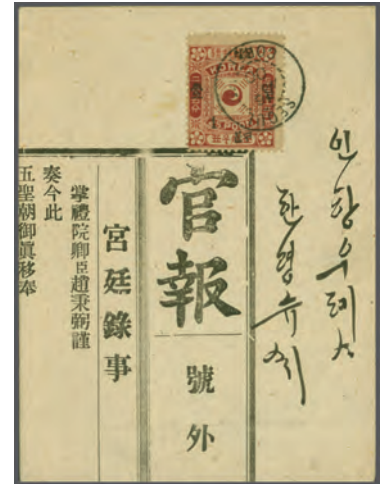 인항우톄사
官報
號外
宮廷錄事
掌禮院卿臣趙秉弼謹
奏今此
五聖朝御眞移奉